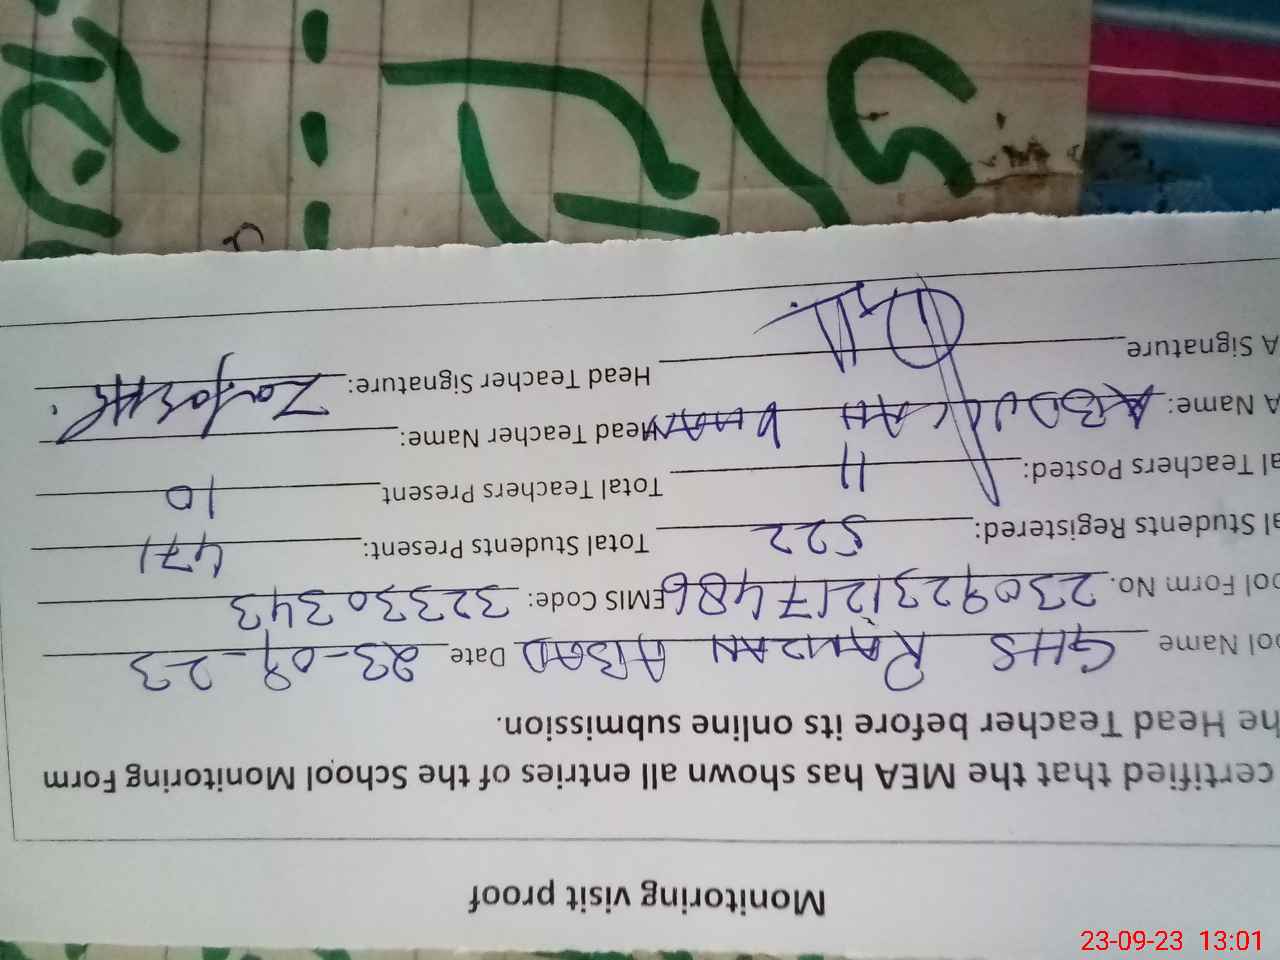 Monitoring visit proof
certified that the MEA has shown all entries of the School Monitoring Form
he Head Teacher before its online submission.
ool Name GHS RAMZAN ABAD Date 23-09-23
ool Form No. 230923121748 EMIS Code: 32330343
al Students Registered: 522 Total Students Present: 471
al Teachers Posted: 11 Total Teachers Present 10
A Name: Head Teacher Name:
A Signature Head Teacher Signature:
23-09-23 13:01